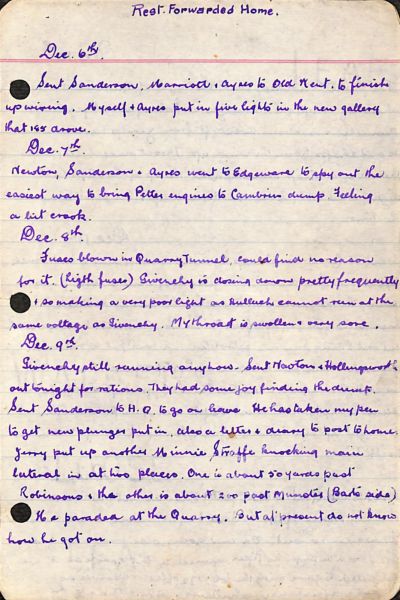 Rest. Forwarded Home.
Dec. 6th.
Sent Sanderson, Marriott & Ayres to Old Kent. to finish
up wiring. Myself & Ayres put in five lights in the new gallery
that 185 drove.
Dec. 7th.
Newton, Sanderson & Ayres went to Edgeware to spy out the
easiest way to bring Petter engines to Cambrin dump. Feeling
a bit crook.
Dec. 8th.
Fuses blown in Quarry Tunnel, could find no reason
for it. (ligth fuses) Givenchy is closing down pretty frequently
& so making a very poor light as Hulluch cannot run at the
same voltage as Givenchy. My throat is swollen & very sore.
Dec. 9th.
Givenchy still running anyhow. Sent Newton & Hollingsworth
out tonight for rations. They had some joy finding the dump.
Sent Sanderson to H.Q. to go on leave. He has taken my pen
to get new plunger put in, also a letter & diary to post to home.
Jerry put up another Minnie Straffe knocking main
lateral in at two places. One is about 50 yards past
Robinsons & the other is about 200 past Mundies (Barts side)
He paraded at the Quarry. But at present do not know
how he got on.